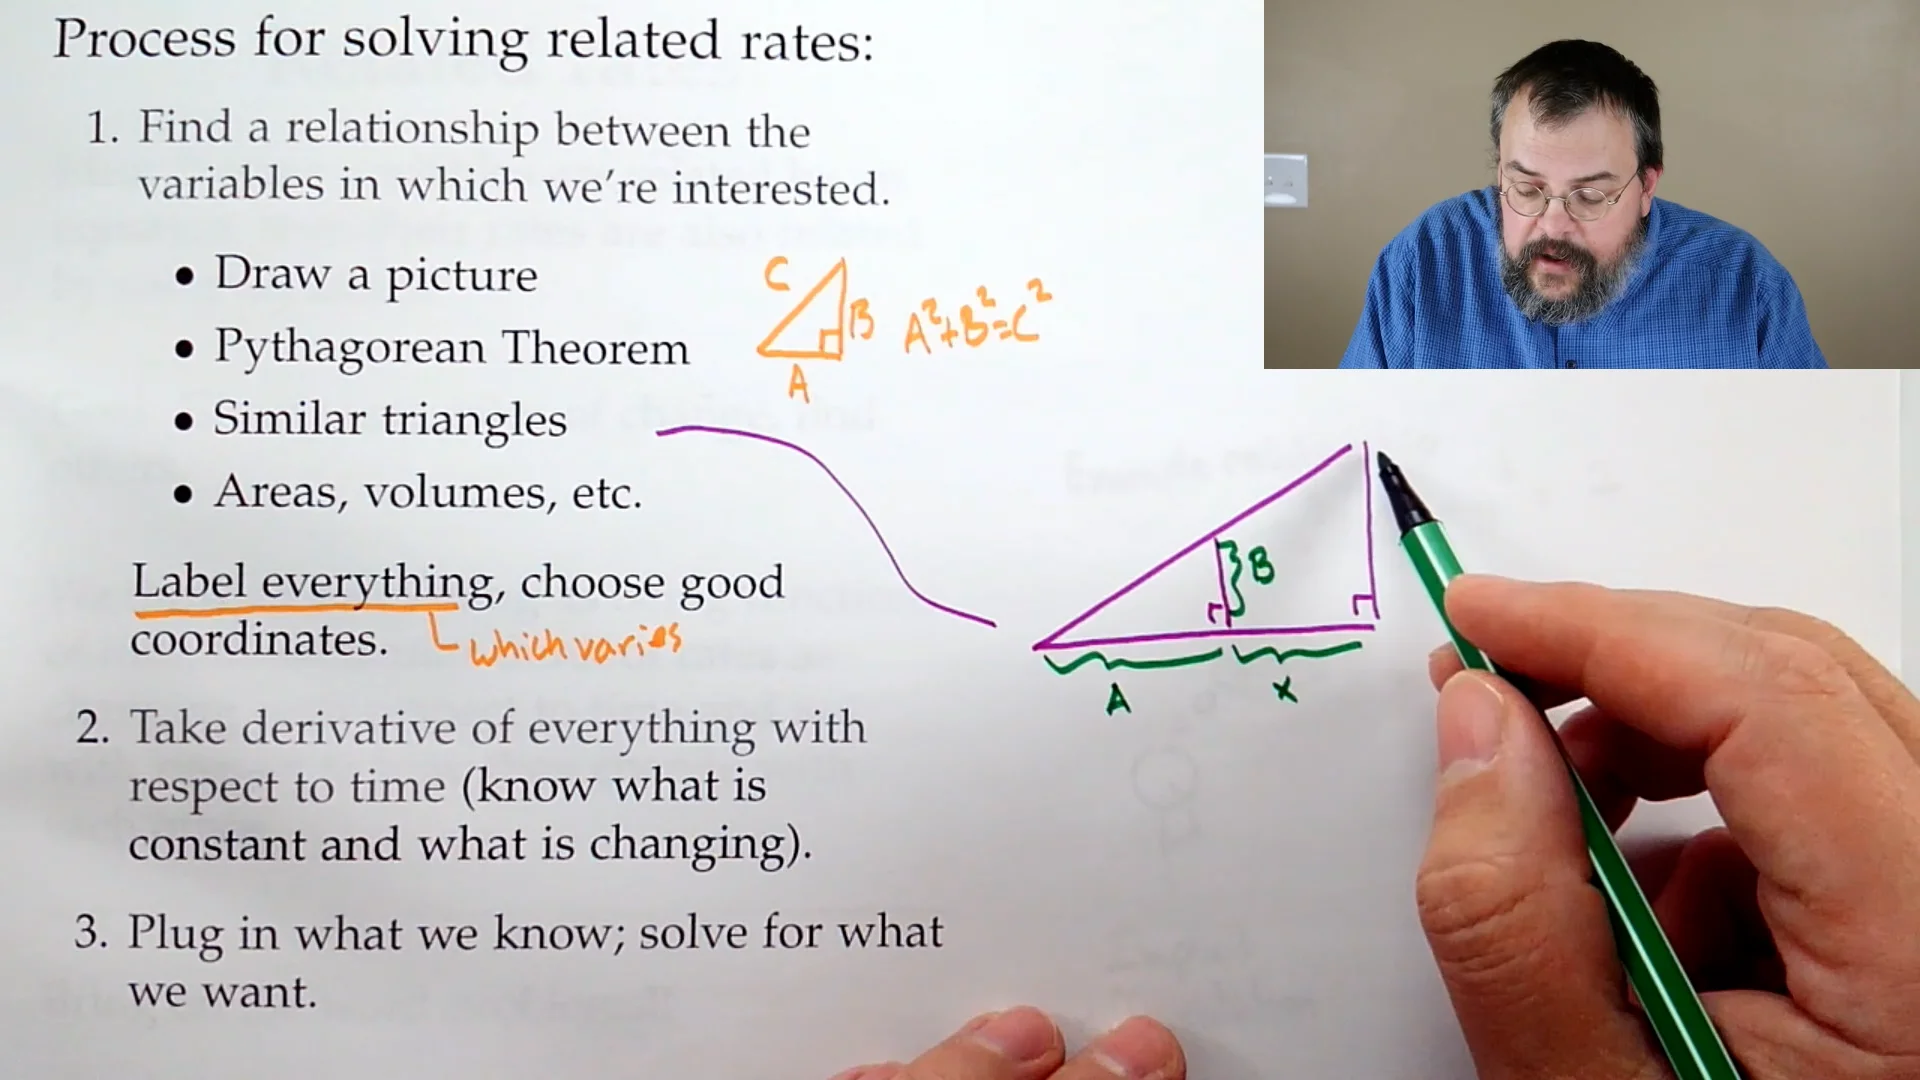 Process for solving related rates:
1. Find a relationship between the
variables in which we're interested.
• Draw a picture
• Pythagorean Theorem
• Similar triangles
• Areas, volumes, etc.
C
B
A
A²+B²=C²
Label everything, choose good
coordinates.
which varies
B
A
x
2. Take derivative of everything with
respect to time (know what is
constant and what is changing).
3. Plug in what we know; solve for what
we want.